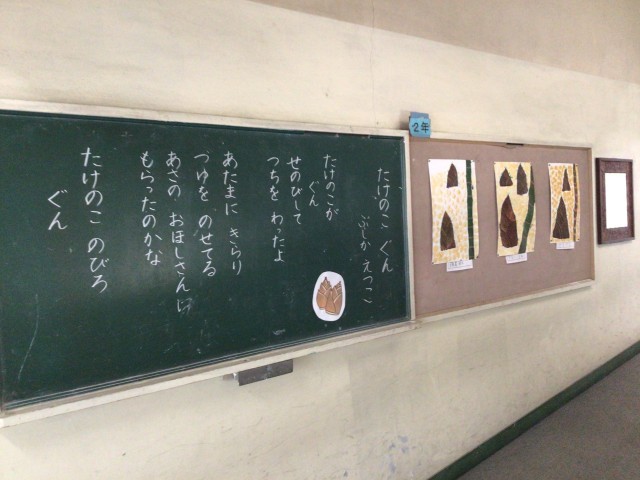 たけのこ ぐん
ぶしか えつこ
たけのこが
ぐん
せのびして
つちを わったよ
あたまに きらり
つゆを のせてる
あさの おほしさんに
もらったのかな
たけのこ のびろ
ぐん
2年